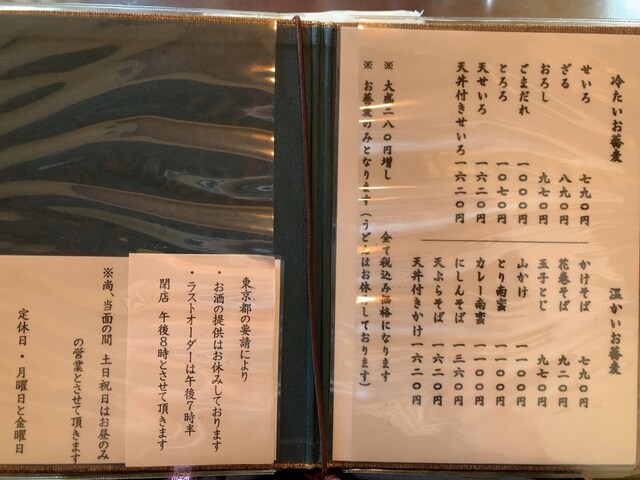 冷たいお蕎麦
せいろ 七九〇円
ざる 八九〇円
おろし 九七〇円
ごまだれ 一〇〇〇円
とろろ 一〇七〇円
天せいろ 一六二〇円
天丼付きせいろ 一六二〇円
温かいお蕎麦
かけそば 七九〇円
花巻そば 九二〇円
玉子とじ 九七〇円
山かけ 一一〇〇円
とり南蛮 一一〇〇円
カレー南蛮 一一〇〇円
にしんそば 一三六〇円
天ぷらそば 一六二〇円
天丼付きかけ 一六二〇円
※ 大盛二八〇円増し 全て税込み価格になります
※ お蕎麦のみとなります(うどんはお休みしております)
東京都の要請により
・お酒の提供はお休みしております
・ラストオーダーは午後7時半
閉店 午後8時とさせて頂きます
※尚、当面の間 土日祝日はお昼のみ
の営業とさせて頂きます
定休日・月曜日と金曜日